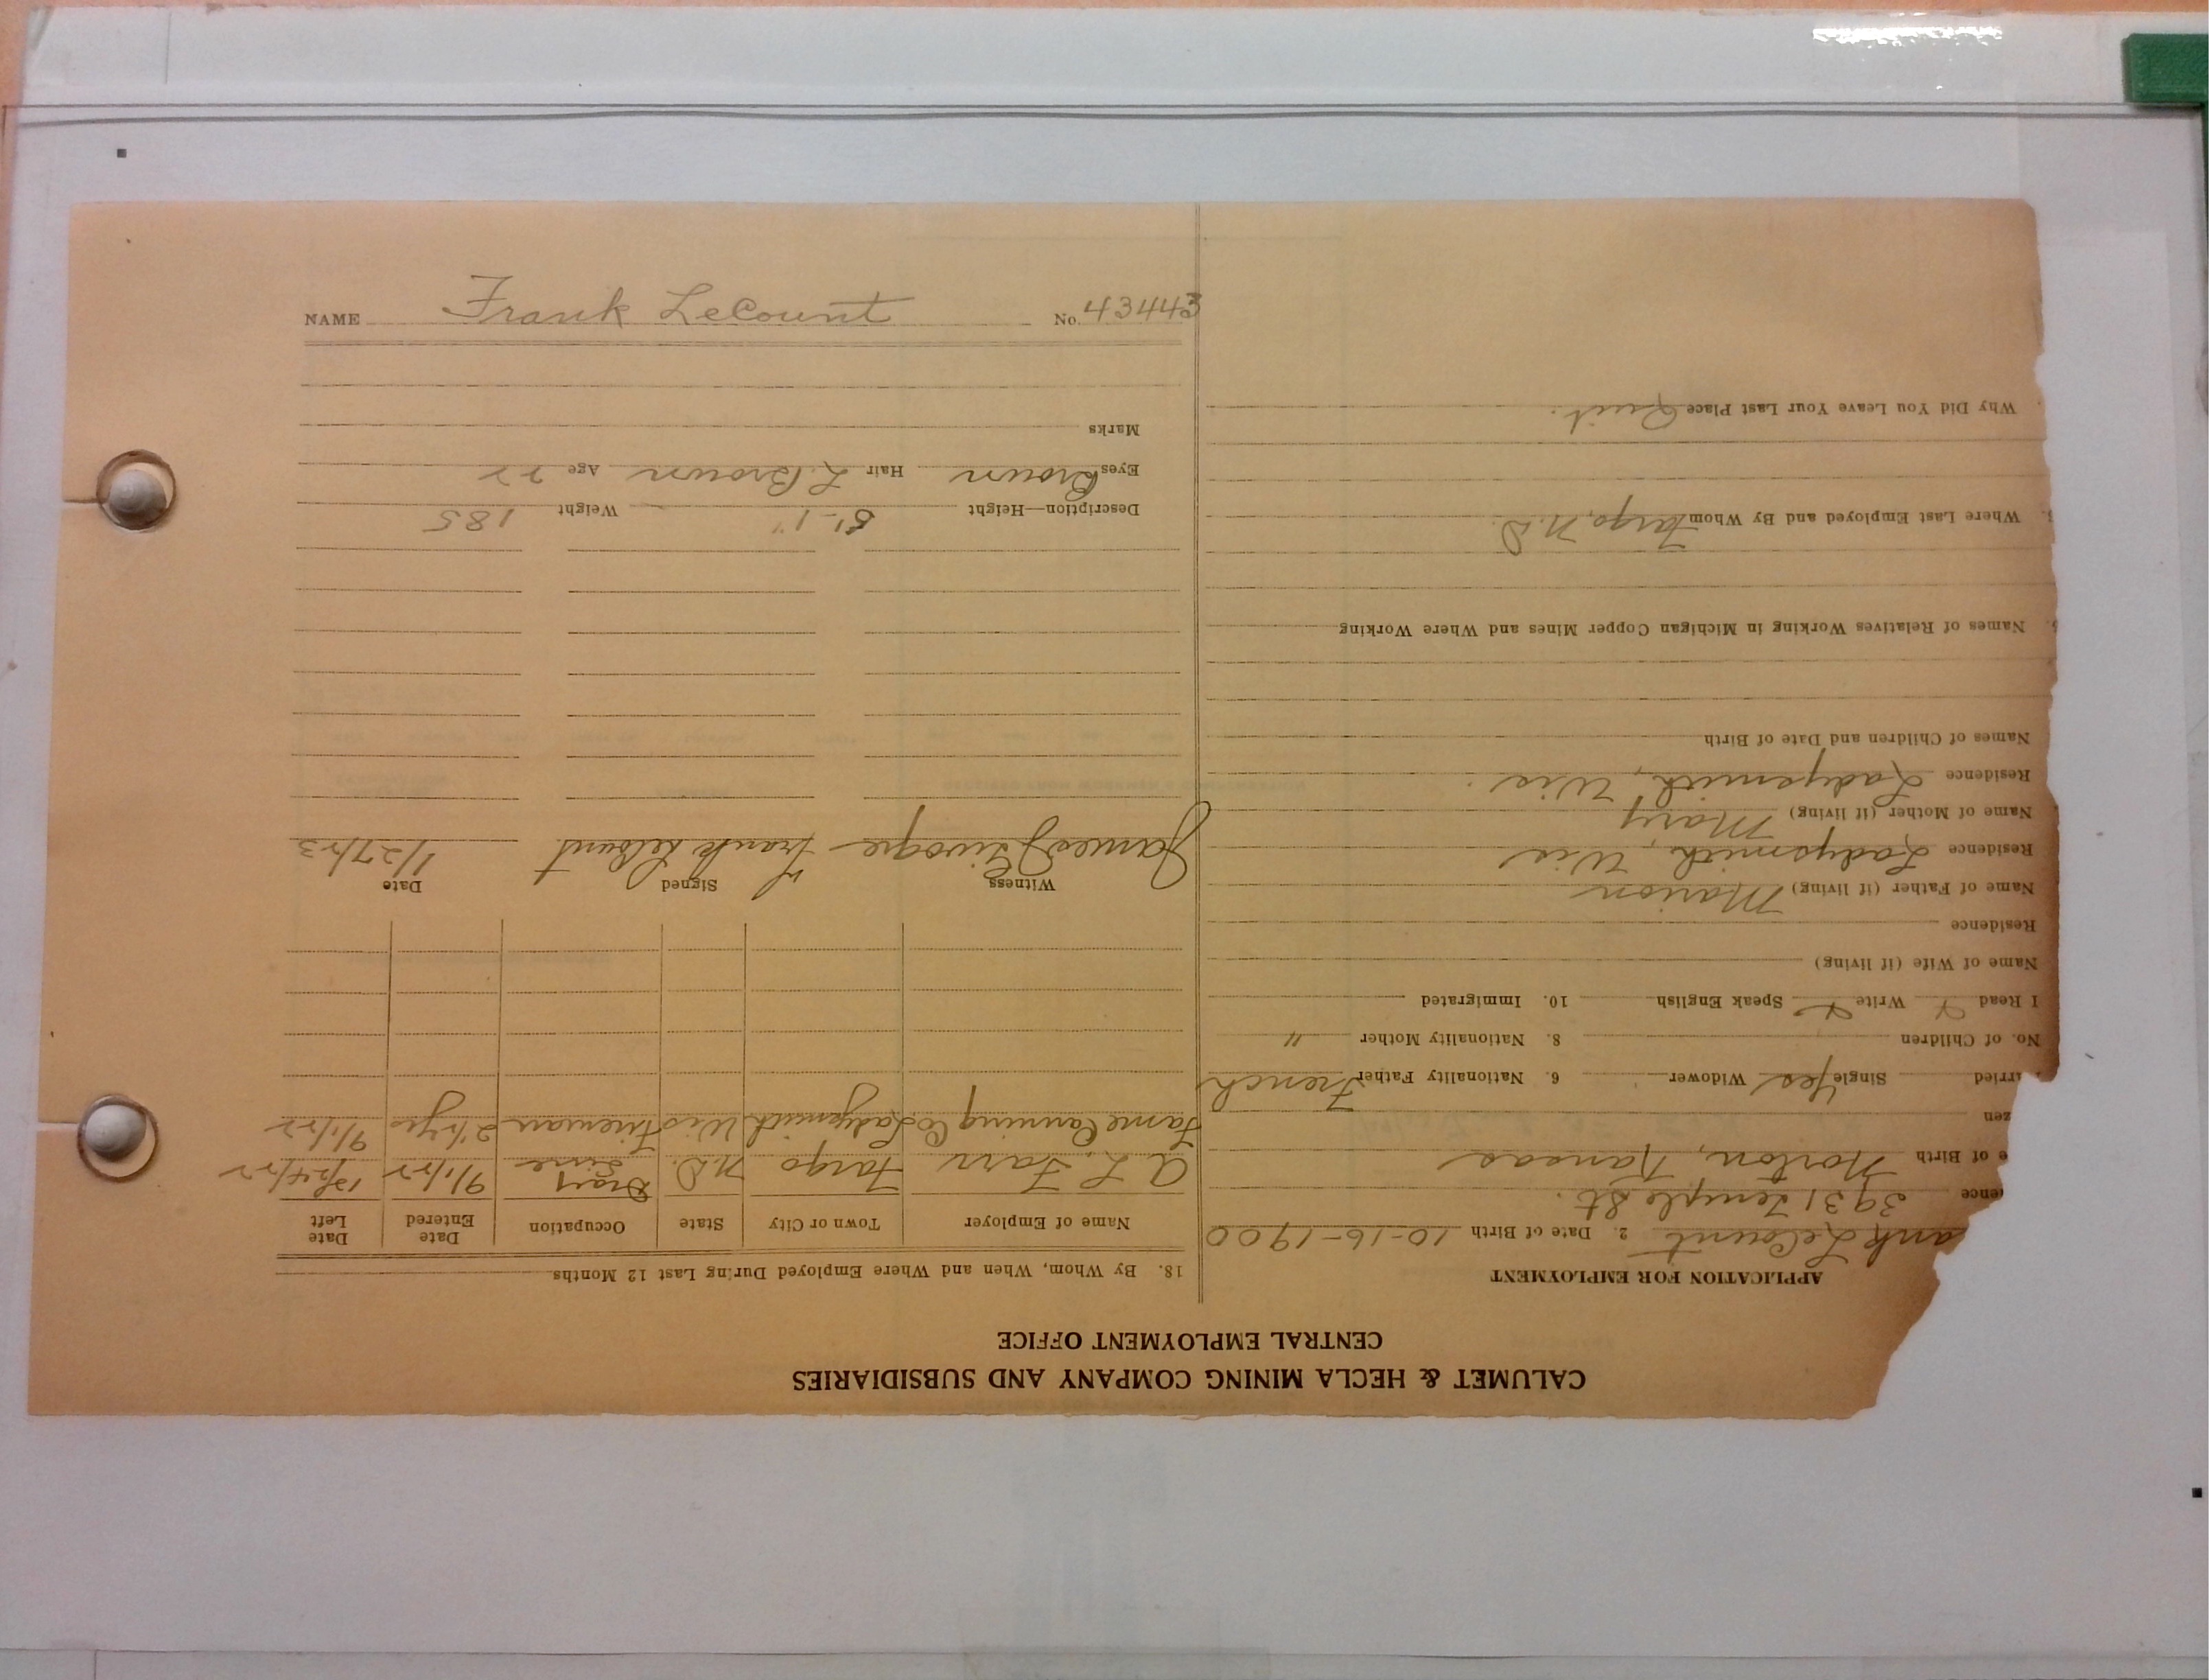 NAME Frank LeCount No. 43443
CALUMET & HECLA MINING COMPANY AND SUBSIDIARIES
CENTRAL EMPLOYMENT OFFICE
APPLICATION FOR EMPLOYMENT
ank LeCount 2. Date of Birth 10-16-1900
ence 3931 Temple St.
e of Birth Norton, Kansas
zen
arried Single Yes Widower 6. Nationality Father French
No. of Children 8. Nationality Mother "
I Read Write Speak English 10. Immigrated
Name of Wife (if living)
Residence
Name of Father (if living) Marion
Residence Ladysmith, Wis
Name of Mother (if living) Mary
Residence Ladysmith, Wis.
Names of Children and Date of Birth
Names of Relatives Working in Michigan Copper Mines and Where Working
Where Last Employed and By Whom Fargo, N.D.
Why Did You Leave Your Last Place Quit.
18. By Whom, When and Where Employed During Last 12 Months
Name of Employer Town or City State Occupation Date Entered Date Left
A L. Farr Fargo N.D. Dray Line 9/1/22
Fame Canning Co Ladysmith Wis Fireman 9/1/22
Witness Signed Date
James Frank LeCount 1/27/23
Description—Height Weight 185
Eyes Brown Hair L. Brown Age 22
Marks